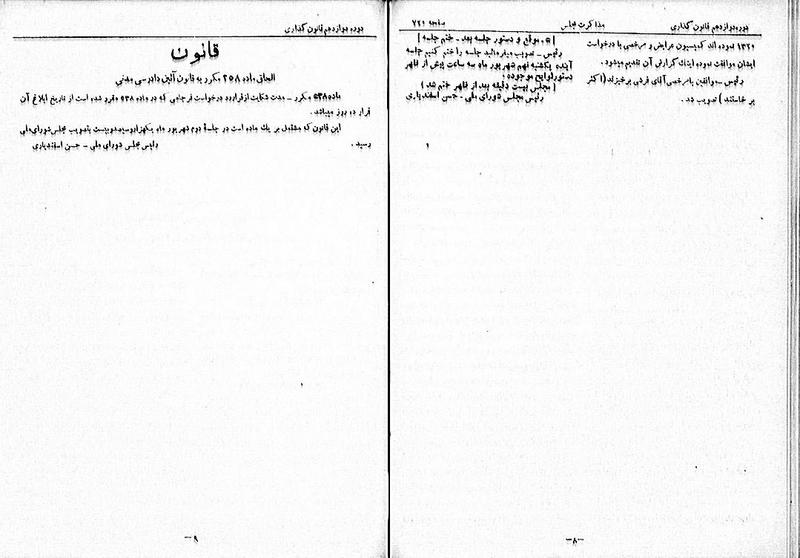 دوره دوازدهم قانون گذاری
مذاکرات مجلس
صفحه ۷۲۱
۱۳۲۰ نموده اند کمیسیون عرایض و مرخصی با درخواست
ایشان موافقت نموده اینک گزارش آن تقدیم میشود.
رئیس ـ موافقین با مرخصی آقای فرشی برخیزند (اکثر
برخاستند) تصویب شد.
[۵ ـ موقع و دستور جلسه بعد ـ ختم جلسه]
رئیس ـ تصویب میفرمائید جلسه را ختم کنیم جلسه
آینده یکشنبه نهم شهریور ماه سه ساعت پیش از ظهر
دستور لوایح موجوده.
[مجلس بیست دقیقه بعد از ظهر ختم شد]
رئیس مجلس شورای ملی ـ حسن اسفندیاری
۱
ـ۸ـ
دوره دوازدهم قانون گذاری
قانون
الحاقی ماده ۴۵۸ مکرر به قانون آئین دادرسی مدنی
ماده ۵۳۸ مکرر ـ مدت شکایت از قرار رد درخواست فرجامی که در ماده ۵۳۸ مقرر شده است از تاریخ ابلاغ آن
قرار ده روز میباشد.
این قانون که مشتمل بر یک ماده است در جلسهٔ دوم شهریور ماه یکهزار و سیصد و بیست بتصویب مجلس شورای ملی
رسید. رئیس مجلس شورای ملی ـ حسن اسفندیاری
ـ۹